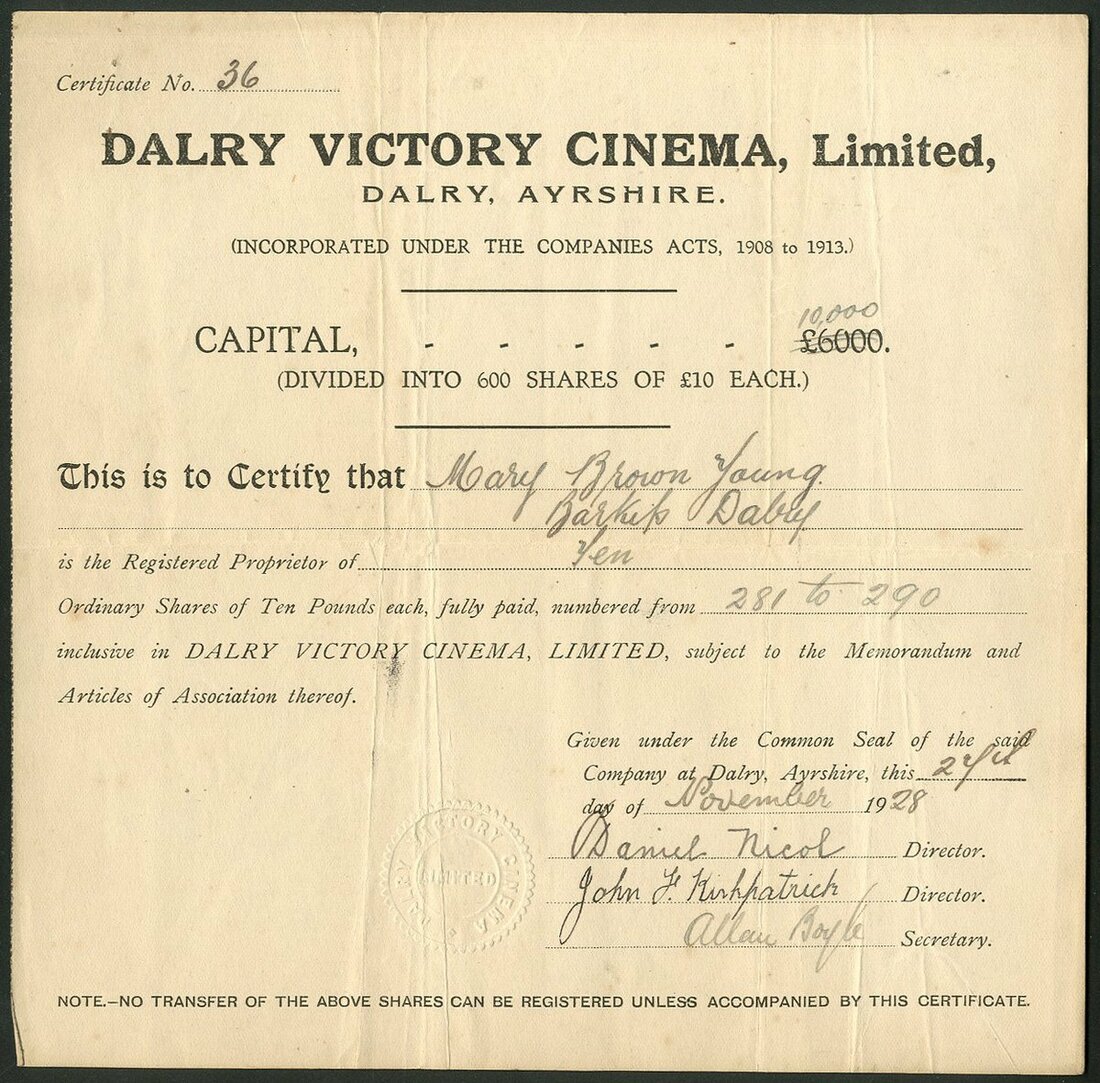 Certificate No. 36
DALRY VICTORY CINEMA, Limited,
DALRY, AYRSHIRE.
(INCORPORATED UNDER THE COMPANIES ACTS, 1908 to 1913.)
10,000
CAPITAL, - - - - - £6000.
(DIVIDED INTO 600 SHARES OF £10 EACH.)
This is to Certify that Mary Brown Young.
Dalry
is the Registered Proprietor of Ten
Ordinary Shares of Ten Pounds each, fully paid, numbered from 281 to 290
inclusive in DALRY VICTORY CINEMA, LIMITED, subject to the Memorandum and
Articles of Association thereof.
Given under the Common Seal of the said
Company at Dalry, Ayrshire, this
day of November 1928
Daniel Nicol Director.
John F. Kirkpatrick Director.
Allan Boyle Secretary.
DALRY VICTORY CINEMA
LIMITED
NOTE.—NO TRANSFER OF THE ABOVE SHARES CAN BE REGISTERED UNLESS ACCOMPANIED BY THIS CERTIFICATE.